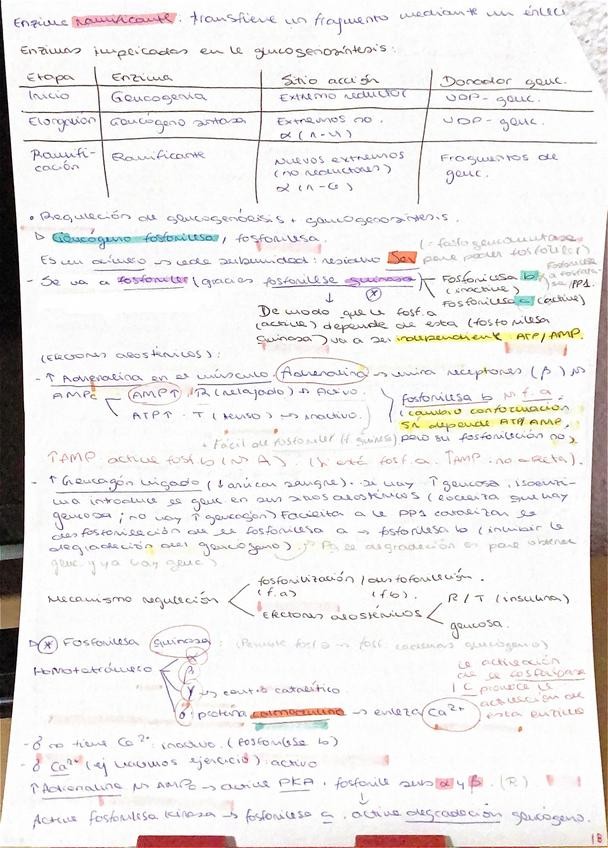 Enzima ramificante: transfiere un fragmento mediante un enlace
Enzimas implicadas en la glucogenosíntesis:
Etapa | Enzima | Sitio acción | Donador gluc.
Inicio | Glucogenia | Extremo reductor | UDP-gluc.
Elongación | Glucógeno sintasa | Extremos no. α(1-4) | UDP-gluc.
Ramificación | Ramificante | Nuevos extremos (no reductores) α(1-6) | Fragmentos de gluc.
• Regulación de glucogenólisis + glucogenosíntesis.
Glucógeno fosforilasa / fosforilasa.
Es un dímero → cada subunidad: residuo Ser para poder fosforilar
- Se va a fosforilar (gracias fosforilasa quinasa)
Fosforilasa b (inactiva)
Fosforilasa a (activa)
De modo que la fosf. a
(activa) depende de esta (fosforilasa
quinasa) va a ser independiente ATP/AMP.
(Efectores alostéricos):
- ↑ Adrenalina en el músculo. Adrenalina → unirá receptores (β)
AMPc AMP↑ R (relajado) → Activo.
ATP↑ · T (tenso) → inactivo.
fosforilasa b
(cambio conformación
Sí depende ATP/AMP,
pero su fosforilación no)
+ Fácil de fosforilar (f. quinasa)
↑AMP activa fosf. b (Si está fosf. a. ↑AMP: no afecta).
- ↑ Glucagón hígado (↓ azúcar sangre). Si hay ↑ glucosa,
introduce la gluc en sus zonas alostéricas (
glucosa, no hay ↑ glucagón) Facilita a la PP1 catalizar la
desfosforilación de la fosforilasa a → fosforilasa b (inhibir la
degradación del glucógeno). Pq la degradación es para obtener
gluc y ya hay gluc)
Mecanismo regulación
fosforilización / desfosforilación.
(f. a) (f. b)
Efectores alostéricos
R/T (insulina)
glucosa.
* Fosforilasa quinasa:
Homotetrámero
α
β
γ → centro catalítico.
δ: proteína calmodulina → enlaza Ca²⁺
la activación
de la fosforilasa
esta enzima
- δ no tiene Ca²⁺: inactivo. (fosforilasa b)
- δ Ca²⁺ (ej hacemos ejercicio): activo
↑Adrenalina AMPc → activa PKA. fosforila subs α y β. (R)
↓
Activa fosforilasa kinasa → fosforilasa a, activa degradación glucógeno.
18